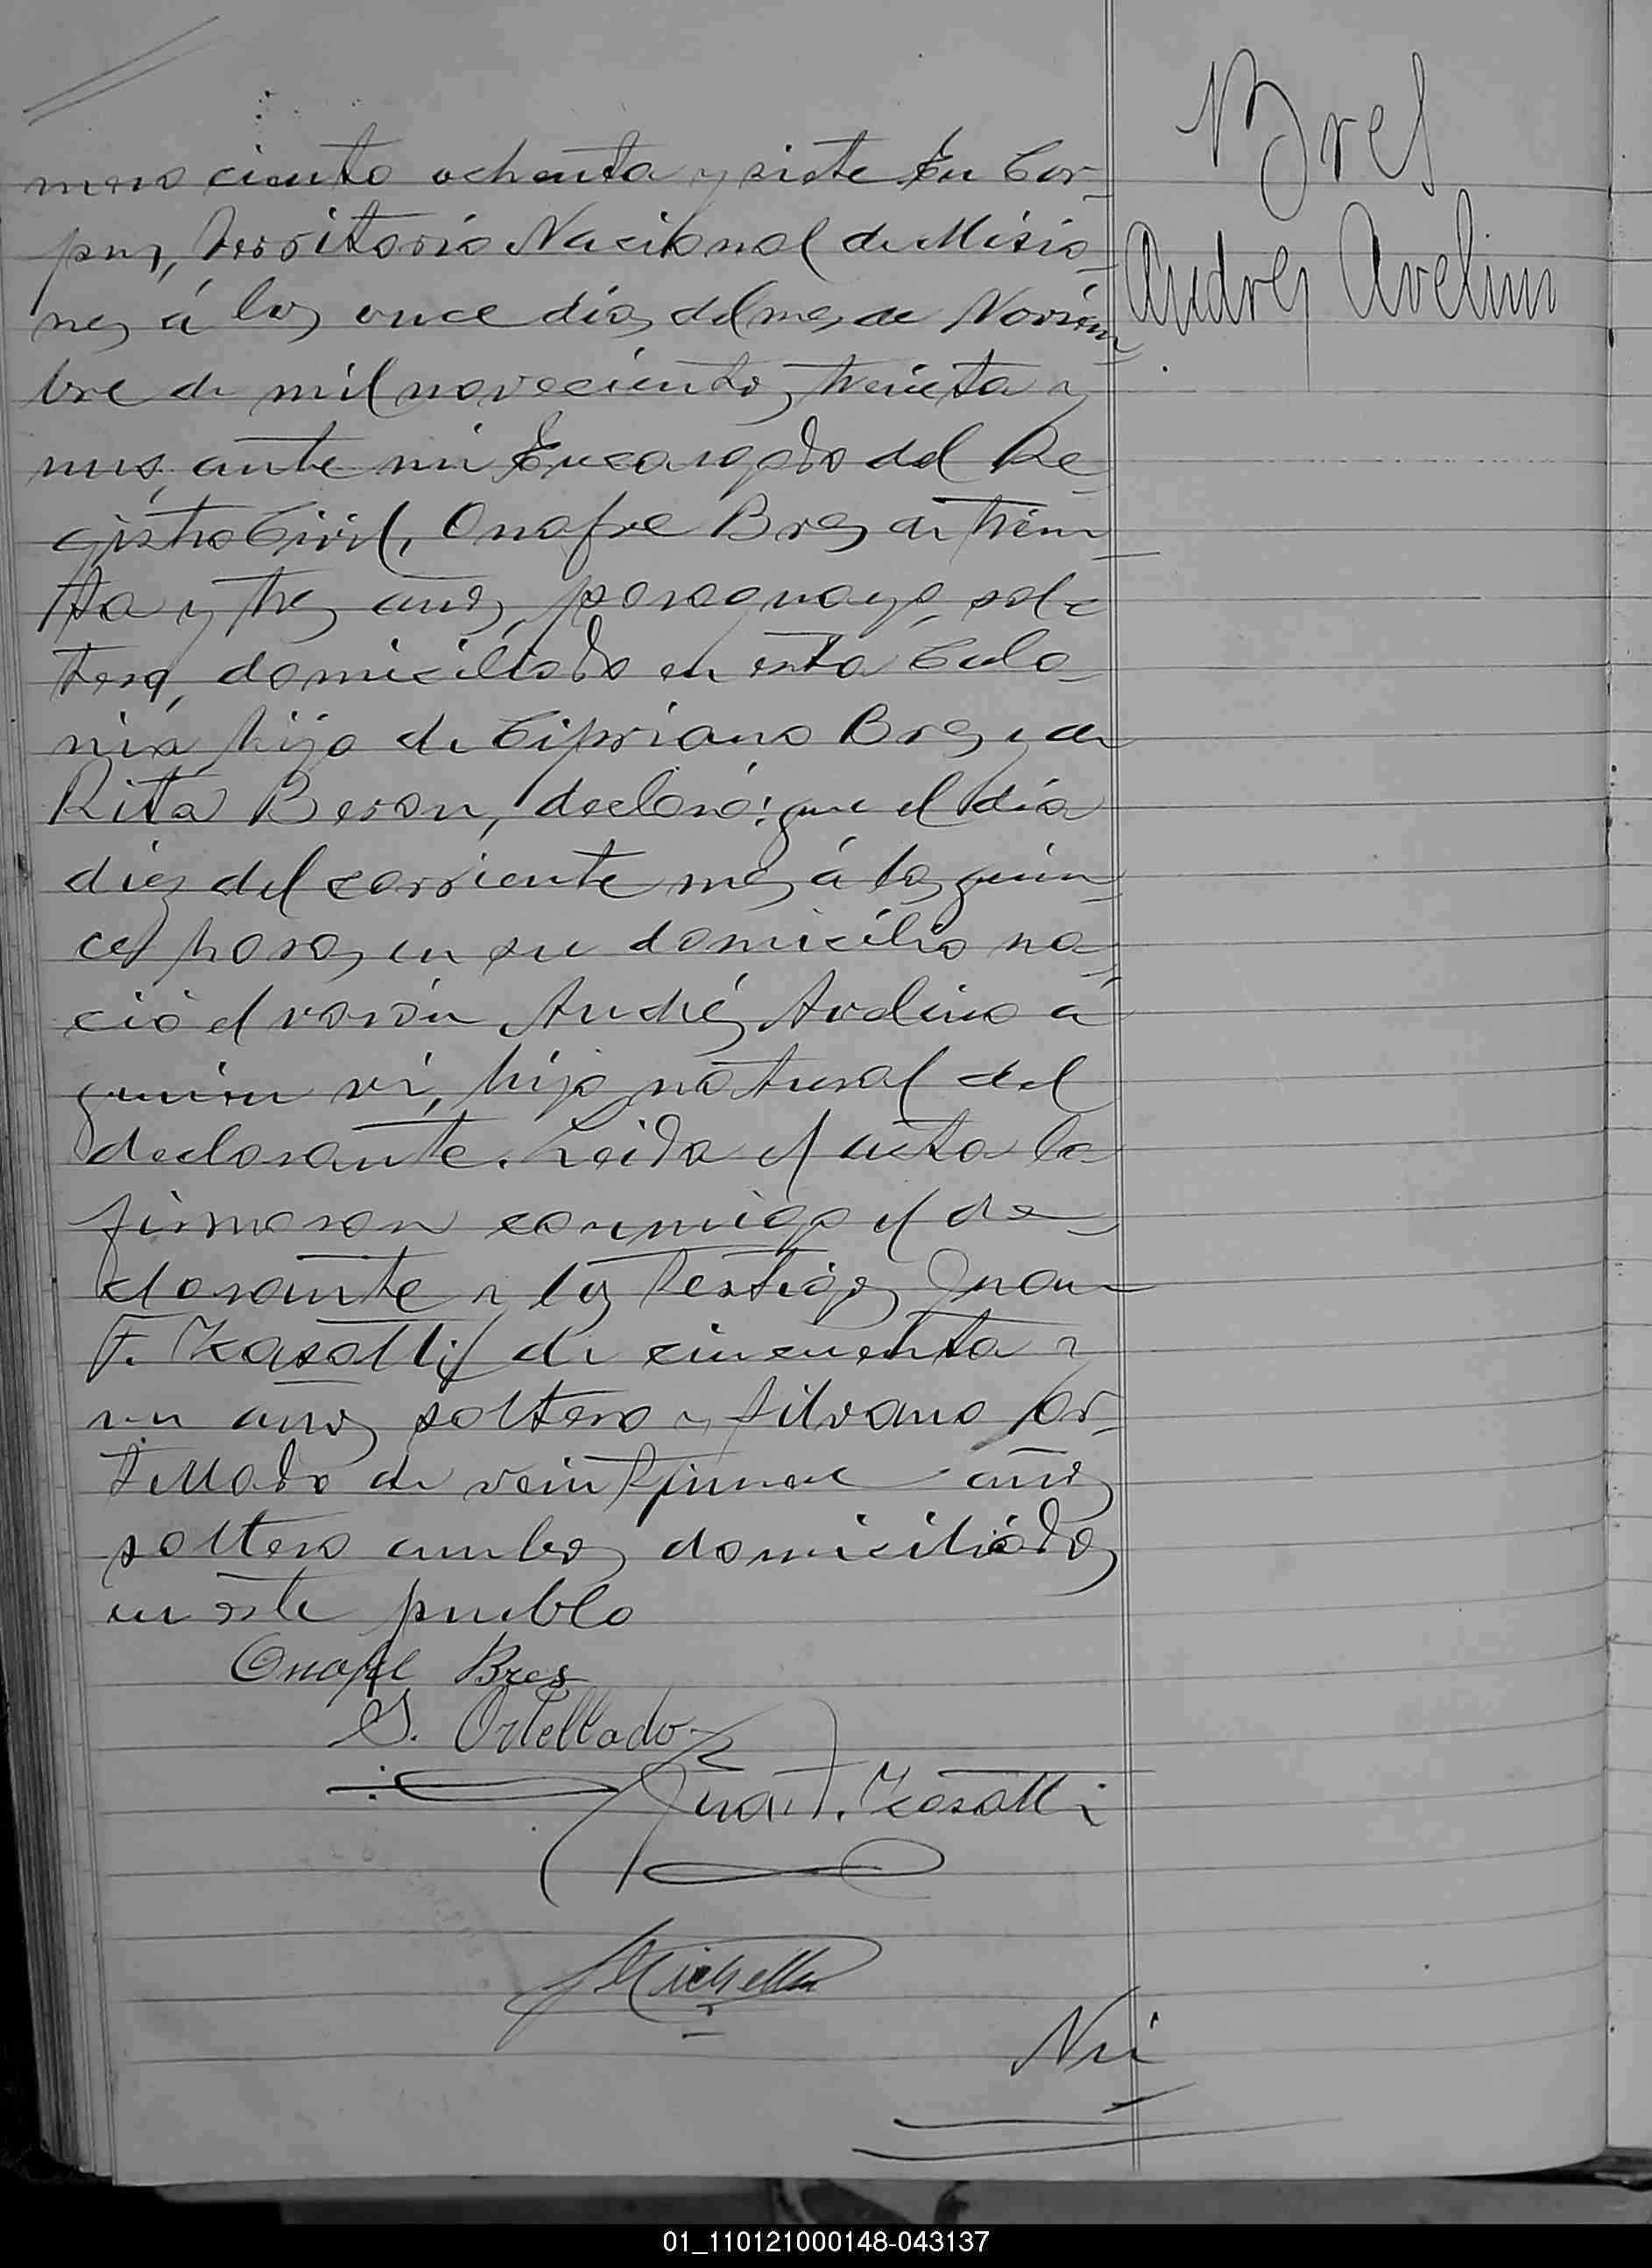 Bres
Andres Avelino
mero ciento ochenta y siete En Cor-
pus, Territorio Nacional de Misio-
nes á los once dias del mes de Noviem-
bre de mil novecientos treinta y
uno, ante mi Encargado del Re-
gistro Civil, Onofre Bres de trein-
ta y tres años, paraguayo, sol-
tero, domiciliado en esta Colo-
nia hijo de Cipriano Bres y de
Rita Beron, declaró: que el día
diez del corriente mes á las quin-
ce horas, en su domicilio na-
ció el varón Andrés Avelino á
quien vi, hijo natural del
declarante. Leida el acta la
firmaron conmigo el de-
clarante y los testigos Juan
F. Kasatti de cincuenta y
un años soltero y Silvano Or-
tellado de veintinueve años
soltero ambos domiciliados
en este pueblo
Onofre Bres
S. Ortellado
Juan F. Kasatti
Nú
01_110121000148-043137